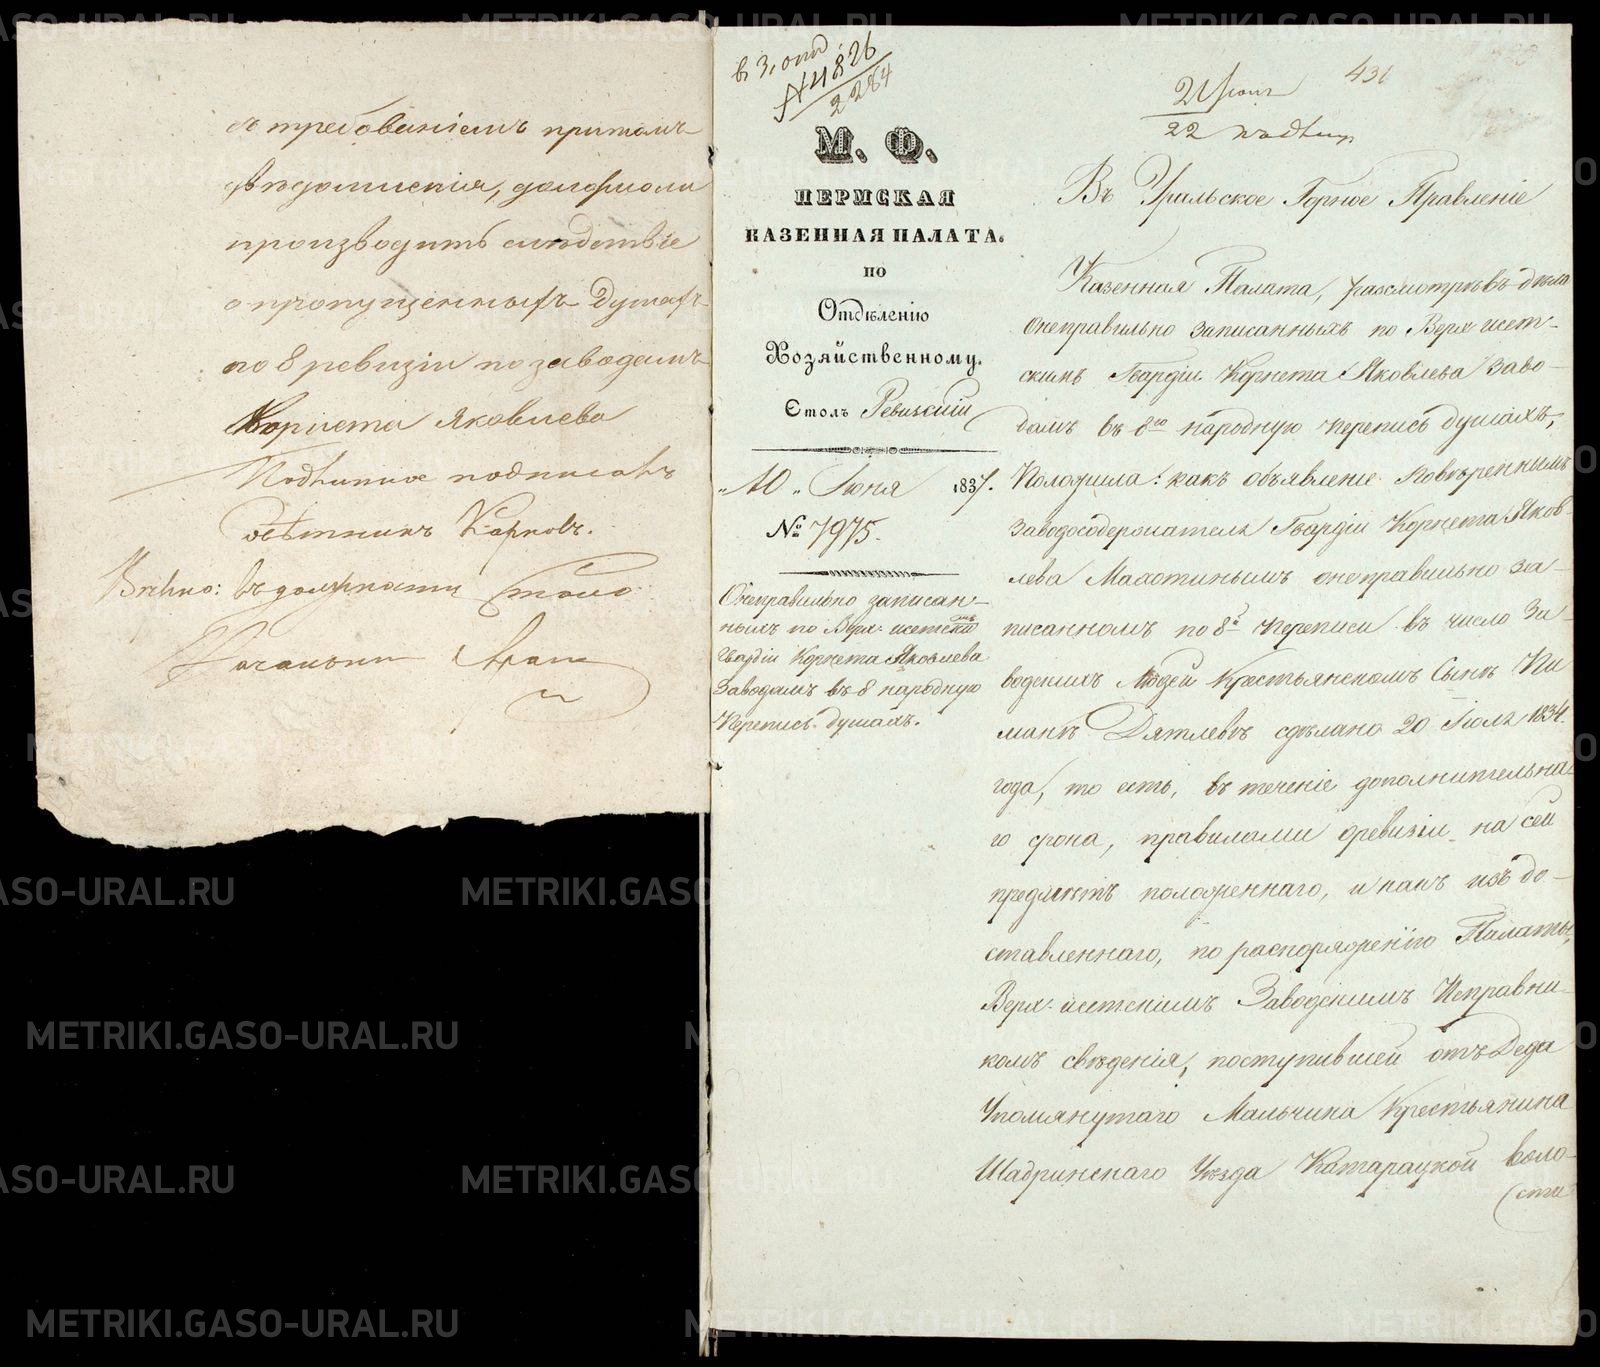 съ требованіемъ притомъ
увѣдомленія, должноли
производить слѣдствіе
о пропущенныхъ душахъ
по 8 ревизіи по заводамъ
Корнета Яковлева
Подлинное подписалъ
Совѣтникъ Карповъ.
Вѣрно: въ должности Столо
начальника
въ 3, отд
№ 4826
2284
21 Іюня
22 подлин
431
М. Ф.
ПЕРМСКАЯ
КАЗЕННАЯ ПАЛАТА.
ПО
Отдѣленію
Хозяйственному.
Столъ Ревизскій
„10„ Іюня 1837.
№ 7975.
Онеправильно записан-
ныхъ по Верх-исетскимъ
Гвардіи Корнета Яковлева
Заводамъ въ 8 народную
Перепись душахъ.
Въ Уральское Горное Правленіе
Казенная Палата, разсмотрѣвъ дѣла
онеправильно записанныхъ по Верх исет-
скимъ Гвардіи Корнета Яковлева Заво-
дамъ въ 8ю народную перепись душахъ,
Положила: какъ объявленіе Повѣреннымъ
Заводосодержателя Гвардіи Корнета Яков-
лева Махотинымъ онеправильно за-
писанномъ по 8й Переписи въ число За-
водскихъ Людей Крестьянскомъ Сынѣ Пи
манѣ Дятлевѣ сдѣлано 20 Іюля 1834.
года, то есть, въ теченіе дополнительна-
го срока, правилами оревизіи на сей
предмѣтъ положеннаго, и какъ изъ до-
ставленнаго, по распоряженію Палаты,
Верх-исетскимъ Заводскимъ Исправни-
комъ свѣденія, поступившей отъ Деда
Упомянутаго Мальчика Крестьянина
Шадринскаго Уѣзда Катарацкой воло-
сти
METRIKI.GASO-URAL.RU